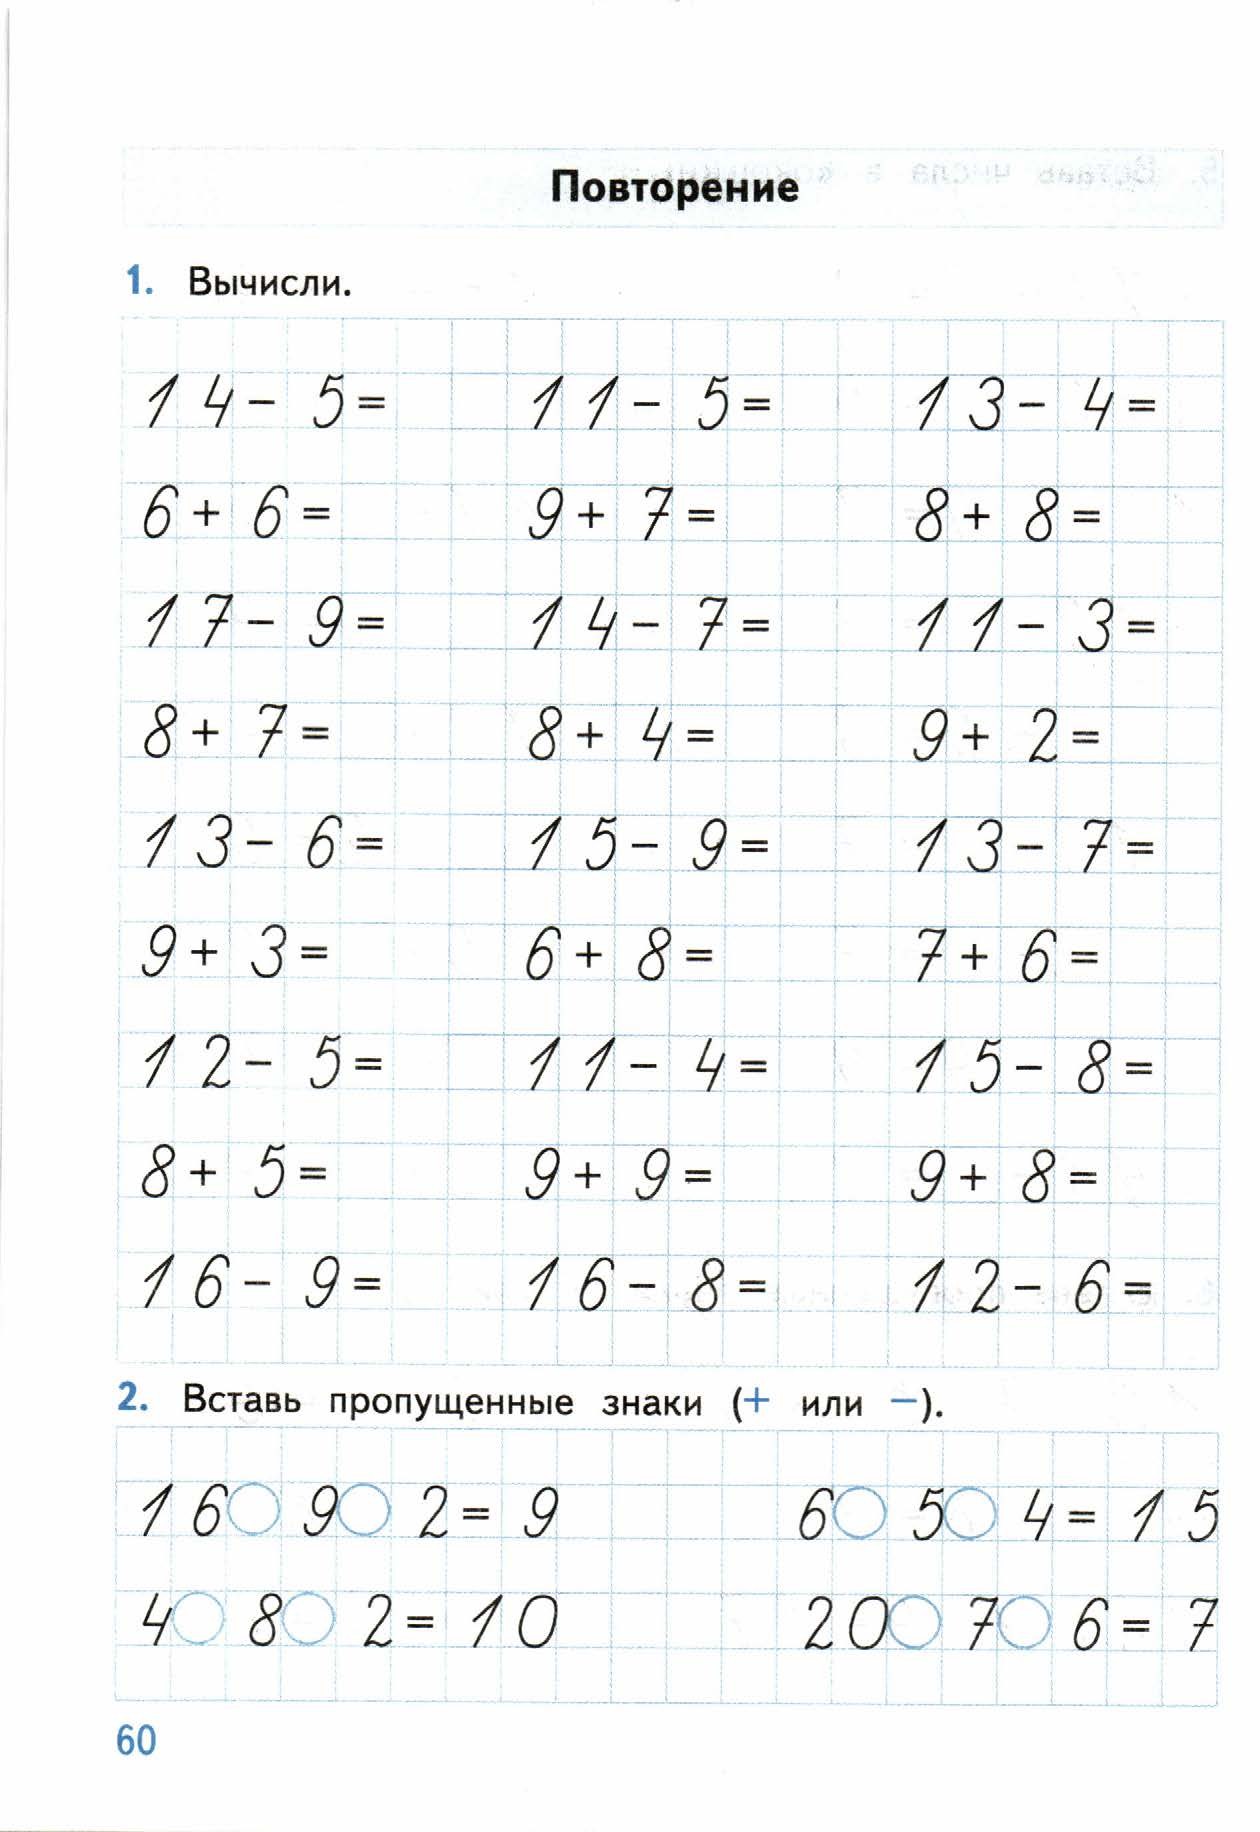 Повторение
1. Вычисли.
14 - 5 = 11 - 5 = 13 - 4 =
6 + 6 = 9 + 7 = 8 + 8 =
17 - 9 = 14 - 7 = 11 - 3 =
8 + 7 = 8 + 4 = 9 + 2 =
13 - 6 = 15 - 9 = 13 - 7 =
9 + 3 = 6 + 8 = 7 + 6 =
12 - 5 = 11 - 4 = 15 - 8 =
8 + 5 = 9 + 9 = 9 + 8 =
16 - 9 = 16 - 8 = 12 - 6 =
2. Вставь пропущенные знаки (+ или −).
16 ○ 9 ○ 2 = 9 6 ○ 5 ○ 4 = 15
4 ○ 8 ○ 2 = 10 20 ○ 7 ○ 6 = 7
60